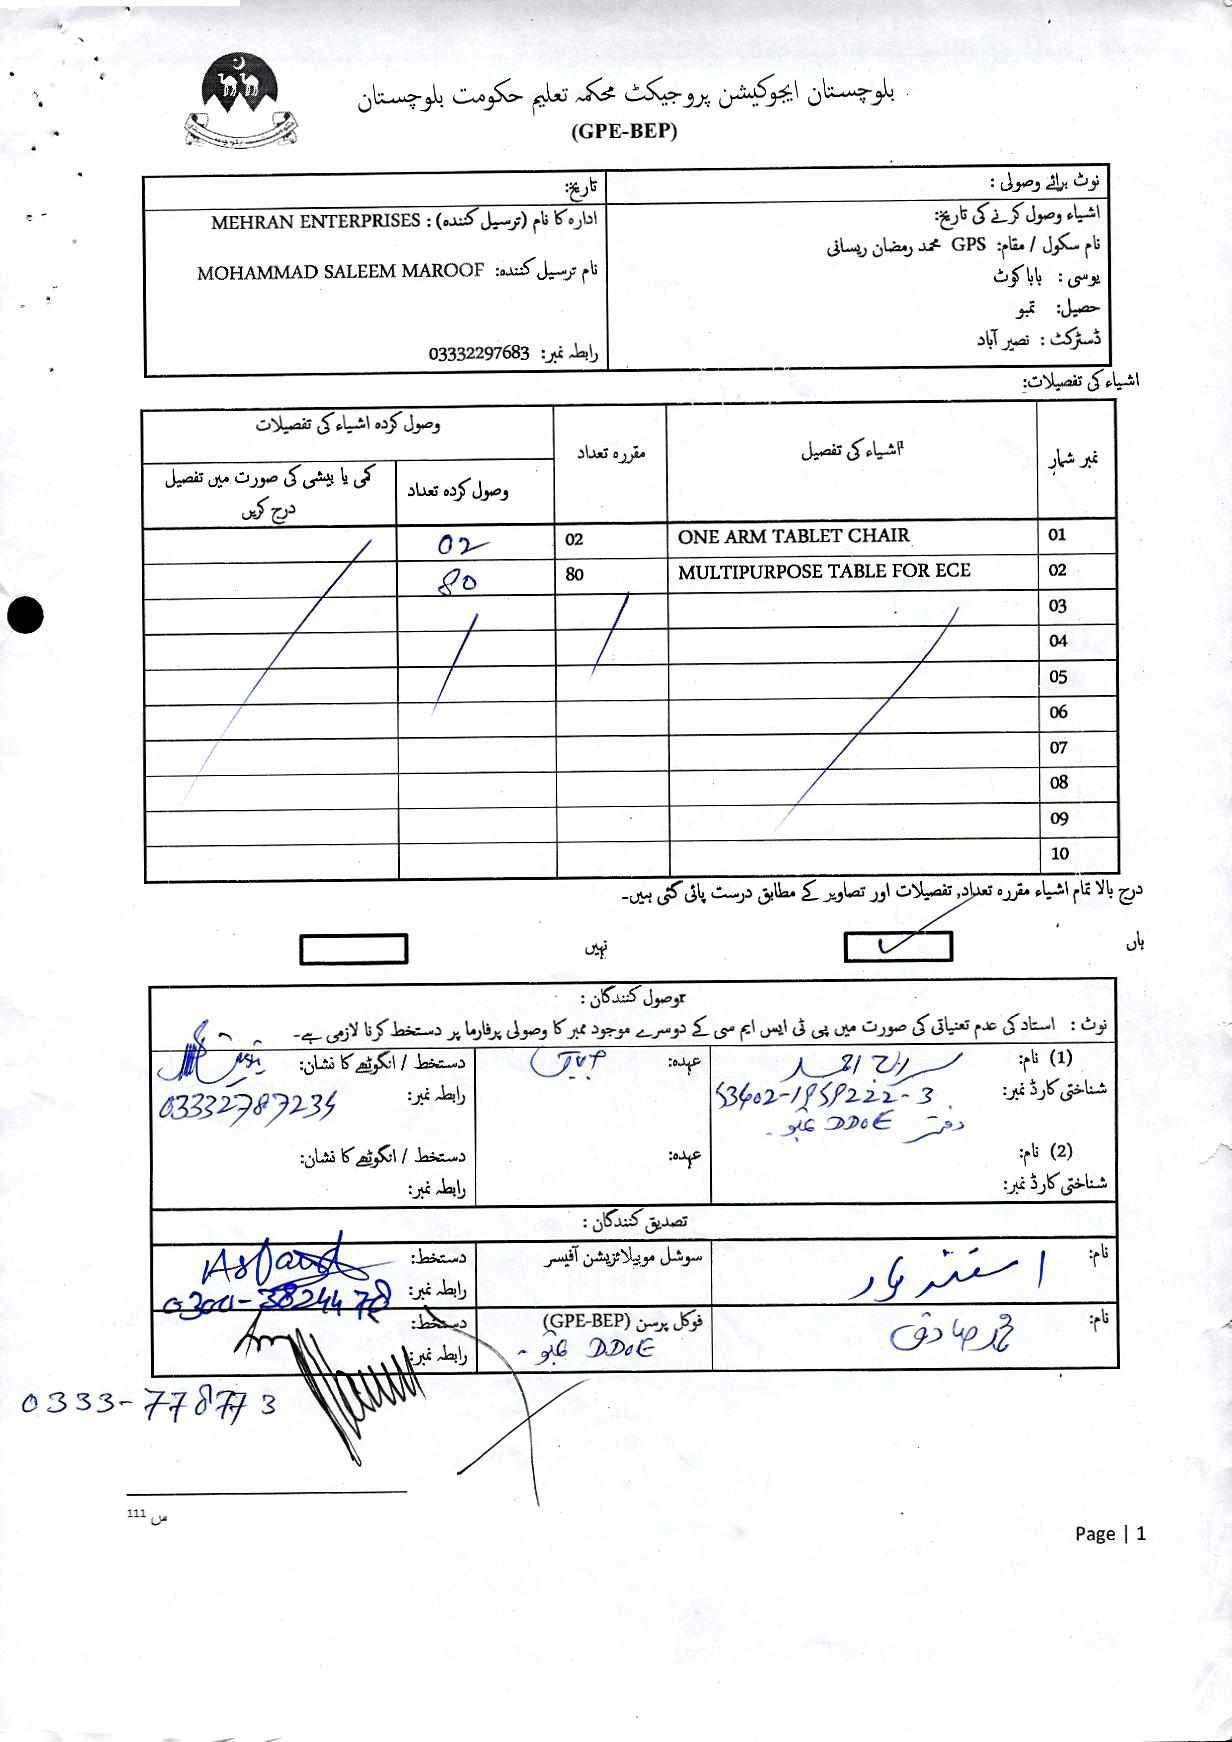 بلوچستان ایجوکیشن پروجیکٹ محکمہ تعلیم حکومت بلوچستان
(GPE-BEP)
نوٹ برائے وصولی :
تاریخ:
اشیاء وصول کرنے کی تاریخ:
نام سکول / مقام: GPS محمد رمضان ریسانی
یوسی : بابا کوٹ
حصیل: تمبو
ڈسٹرکٹ : نصیر آباد
ادارہ کا نام (ترسیل کنندہ) : MEHRAN ENTERPRISES
نام ترسیل کنندہ: MOHAMMAD SALEEM MAROOF
رابطہ نمبر: 03332297683
اشیاء کی تفصیلات:
نمبر شمار اشیاء کی تفصیل مقررہ تعداد وصول کردہ اشیاء کی تفصیلات
وصول کردہ تعداد کمی یا بیشی کی صورت میں تفصیل درج کریں
01 ONE ARM TABLET CHAIR 02 02
02 MULTIPURPOSE TABLE FOR ECE 80 80
03
04
05
06
07
08
09
10
درج بالا تمام اشیاء مقررہ تعداد, تفصیلات اور تصاویر کے مطابق درست پائی گئی ہیں۔
ہاں نہیں
وصول کنندگان :
نوٹ : استاد کی عدم تعنیاتی کی صورت میں پی ٹی ایس ایم سی کے دوسرے موجود ممبر کا وصولی پرفارما پر دستخط کرنا لازمی ہے۔
(1) نام: عہدہ: JVT دستخط / انگوٹھے کا نشان:
شناختی کارڈ نمبر: رابطہ نمبر: 03332787234
دفتر DDOE تمبو۔
(2) نام: عہدہ: دستخط / انگوٹھے کا نشان:
شناختی کارڈ نمبر: رابطہ نمبر:
تصدیق کنندگان :
نام: سوشل موبیلائزیشن آفیسر دستخط:
رابطہ نمبر: 0300-3824478
نام: محمد صادق فوکل پرسن (GPE-BEP) دستخط:
DDOE تمبو۔ رابطہ نمبر:
0333-778773
111 س
Page | 1